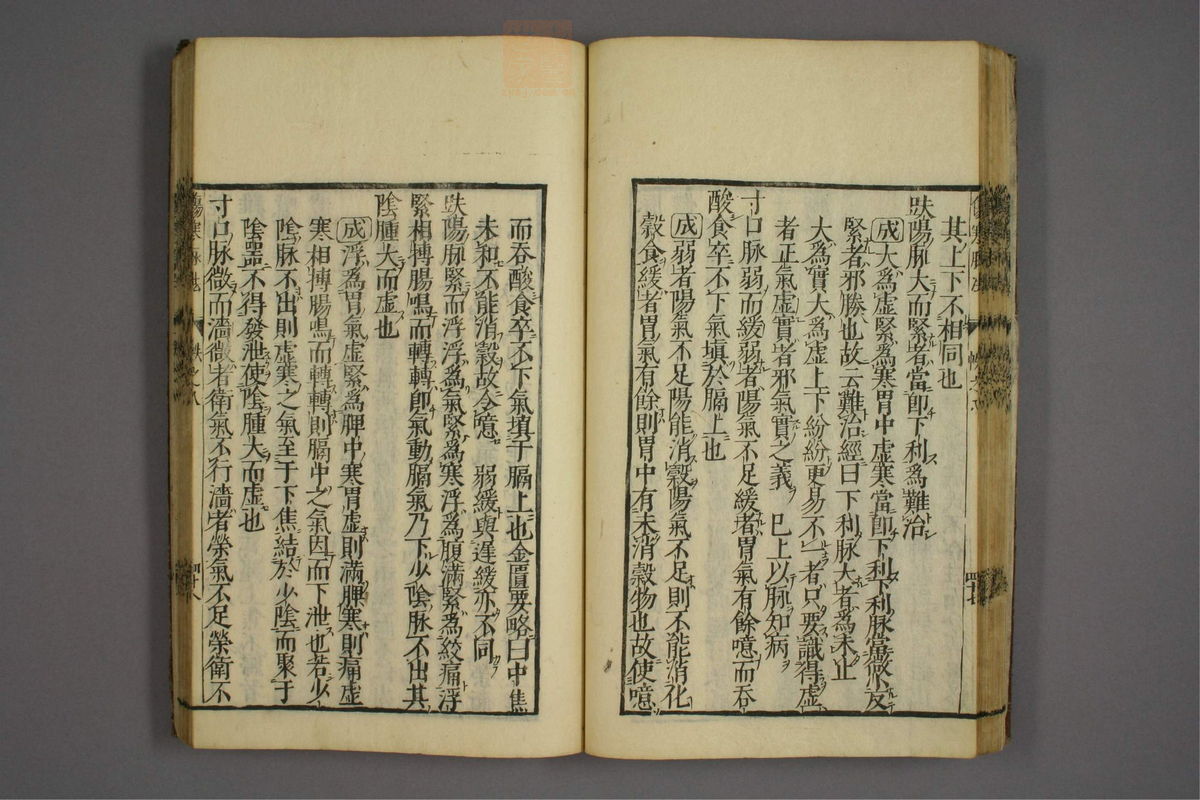 其上下不相同也
趺陽脉大而緊者當卽下利爲難治
成大爲虛緊爲寒胃中虛寒當卽下利下利脉當微小反
緊者邪勝也故云難治經曰下利脉大者爲未止
大爲實大爲虛上下紛紛更易不一者只要識得虛
者正氣虛實者邪氣實之義 已上以脉知病
寸口脉弱而緩弱者陽氣不足緩者胃氣有餘噫而吞
酸食卒不下氣塡於膈上也
成弱者陽氣不足陽能消穀陽氣不足則不能消化
穀食緩者胃氣有餘則胃中有未消穀物也故使噫
而吞酸食卒不下氣塡于膈上也金匱要略曰中焦
未和不能消穀故令噫 弱緩與遲緩亦不同
趺陽脉緊而浮浮爲氣緊爲寒浮爲腹滿緊爲絞痛浮
緊相搏腸鳴而轉轉卽氣動膈氣乃下少陰脉不出其
陰腫大而虛也
成浮爲胃氣虛緊爲脾中寒胃虛則滿脾寒則痛虛
寒相搏腸鳴而轉轉則膈中之氣因而下泄也若少
陰脉不出則虛寒之氣至于下焦結於少陰而聚于
陰器不得發泄使陰腫大而虛也
寸口脉微而濇微者衛氣不行濇者榮氣不足榮衛不
四十八